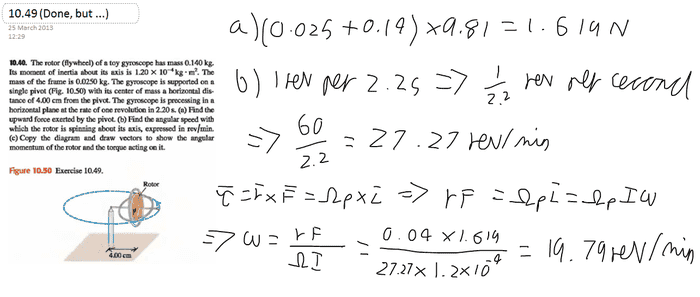 10.49 (Done, but ...)
25 March 2013
12:29
10.40. The rotor (flywheel) of a toy gyroscope has mass 0.140 kg.
Its moment of inertia about its axis is 1.20 × 10⁻⁴ kg · m². The
mass of the frame is 0.0250 kg. The gyroscope is supported on a
single pivot (Fig. 10.50) with its center of mass a horizontal dis-
tance of 4.00 cm from the pivot. The gyroscope is precessing in a
horizontal plane at the rate of one revolution in 2.20 s. (a) Find the
upward force exerted by the pivot. (b) Find the angular speed with
which the rotor is spinning about its axis, expressed in rev/min.
(c) Copy the diagram and draw vectors to show the angular
momentum of the rotor and the torque acting on it.
Figure 10.50 Exercise 10.49.
Rotor
4.00 cm
a) (0.025 + 0.14) × 9.81 = 1.619 N
b) 1 rev per 2.2s => 1/2.2 rev per cecond
=> 60/2.2 = 27.27 rev/min
τ̄ = r̄ × F̄ = Ωp × L̄ => rF = Ωp L̄ = Ωp I ω
=> ω = rF/ΩI = 0.04 × 1.619/27.27 × 1.2 × 10⁻⁴ = 19.79 rev/min